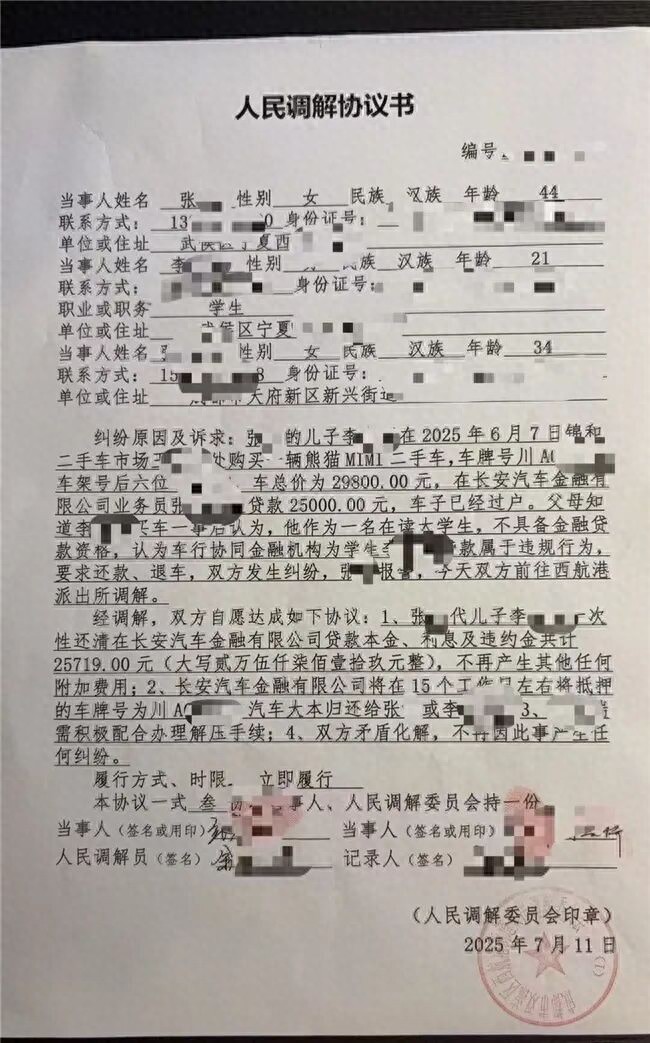 人民调解协议书
编号
当事人姓名 张 性别 女 民族 汉族 年龄 44
联系方式：13 0 身份证号：
单位或住址 武侯区宁夏西
当事人姓名 李 性别 民族 汉族 年龄 21
联系方式： 身份证号：
职业或职务 学生
单位或住址 武侯区宁夏
当事人姓名 张 性别 女 民族 汉族 年龄 34
联系方式：15 3 身份证号：
单位或住址 天府新区新兴街道
纠纷原因及诉求：张 的儿子李 在 2025 年 6 月 7 日锦和
二手车市场 处购买一辆熊猫 MIMI 二手车，车牌号川 A
车架号后六位 车总价为 29800.00 元，在长安汽车金融有
限公司业务员张 贷款 25000.00 元，车子已经过户。父母知
道李 买车一事后认为，他作为一名在读大学生，不具备金融贷
款资格，认为车行协同金融机构为学生 款属于违规行为，
要求还款、退车，双方发生纠纷，张 报警，今天双方前往西航港
派出所调解。
经调解，双方自愿达成如下协议：1、张 代儿子李 一次
性还清在长安汽车金融有限公司贷款本金、利息及违约金共计
25719.00 元（大写贰万伍仟柒佰壹拾玖元整），不再产生其他任何
附加费用；2、长安汽车金融有限公司将在 15 个工作日左右将抵押
的车牌号为川 A 汽车大本归还给张 或李 3、
需积极配合办理解压手续；4、双方矛盾化解，不再因此事产生任
何纠纷。
履行方式、时限 立即履行
本协议一式 叁 事人、人民调解委员会持一份
当事人（签名或用印） 当事人（签名或用印）
人民调解员（签名） 记录人（签名）
（人民调解委员会印章）
2025 年 7 月 11 日